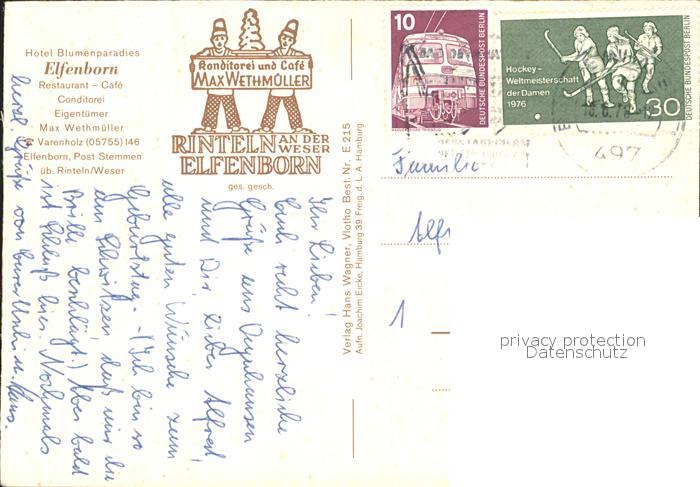 Hotel Blumenparadies
Elfenborn
Restaurant – Café
Conditorei
Eigentümer
Max Wethmüller
Varenholz (05755) 146
Elfenborn, Post Stemmen
üb. Rinteln/Weser
Konditorei und Café
MAX WETHMÜLLER
RINTELN AN DER WESER
ELFENBORN
ges. gesch.
Verlag Hans Wagner, Vlotho Best. Nr. E 215
Aufn. Joachim Eicke, Hamburg 39 Freig. d. L. A. Hamburg
10
DEUTSCHE BUNDESPOST BERLIN
Hockey-
Weltmeisterschaft
der Damen
1976
30
DEUTSCHE BUNDESPOST BERLIN
497
Familie
Alfr
1
Ihr Lieben!
Euch recht herzliche
Grüße aus Oeynhausen
und Dir, lieber Alfred,
alle guten Wünsche zum
Geburtstag. – (Ich bin so
am Schwitzen, daß mir die
Brille beschlägt.) Aber bald
ist Schluß hier. Nochmals
herzl. Grüße von Eurer Uschi u. Hans.
privacy protection
Datenschutz